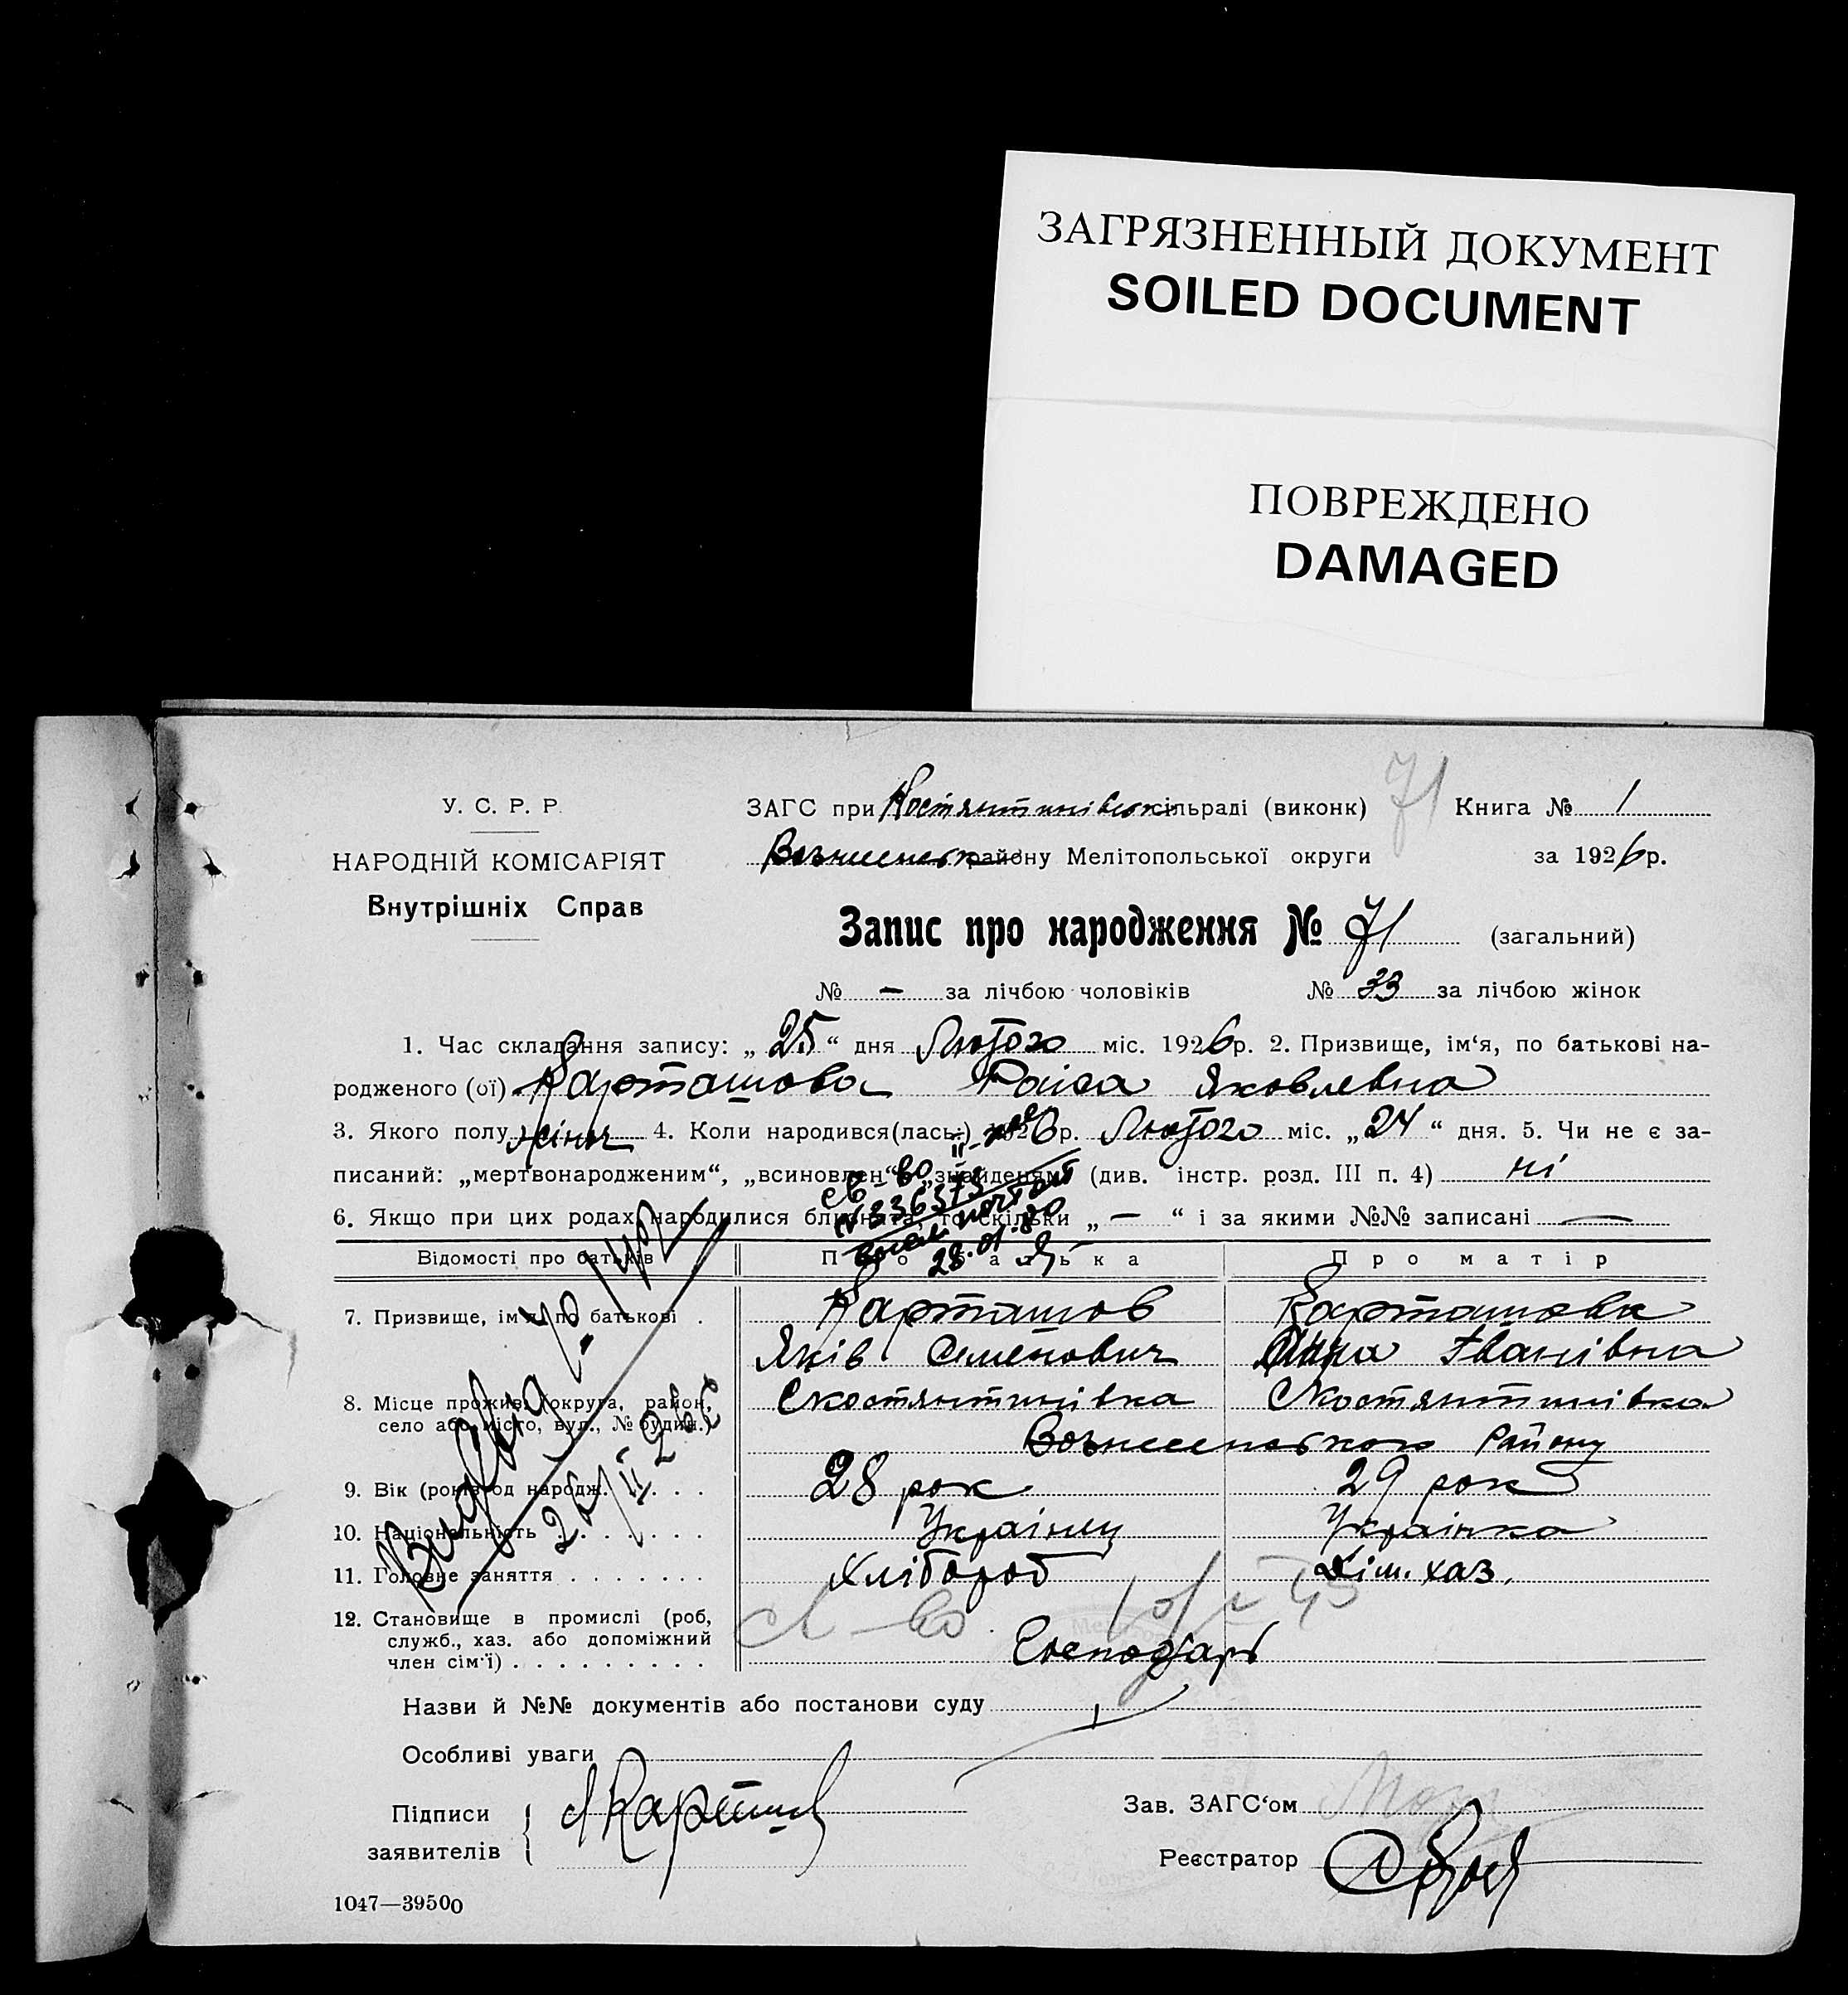 ЗАГРЯЗНЕННЫЙ ДОКУМЕНТ
SOILED DOCUMENT
ПОВРЕЖДЕНО
DAMAGED
У. С. Р. Р.
НАРОДНІЙ КОМІСАРІЯТ
Внутрішніх Справ
ЗАГС при Костянтинівськ сільраді (виконк) 71 Книга № 1
району Мелітопольської округи за 1926 р.
Запис про народження № 71 (загальний)
№ — за лічбою чоловіків № 33 за лічбою жінок
1. Час складання запису: „25“ дня Лютого міс. 1926 р. 2. Призвище, ім‘я, по батькові на-
родженого (ої) Карташова Раїса Яковлевна
3. Якого полу жіноч 4. Коли народився(лась:) 1926 р. Лютого міс. „24“ дня. 5. Чи не є за-
писаний: „мертвонародженим“, „всиновлен“, „знайденям“ (див. інстр. розд. III п. 4) ні
6. Якщо при цих родах народилися близнята, то скільки „—“ і за якими №№ записані —
св-во
28.01.80
Відомості про батьків Про батька Про матір
7. Призвище, ім‘я, по батькові . Карташов Карташова
Яків Семенович Анна Іванівна
8. Місце прожив. (округа, район, село або місто, вул., № будин.) С Костянтинівка С Костянтинівка
Вознесенського Району
9. Вік (років од народж. . . . . 28 рок 29 рок
10. Національність . . . . . . . Українец Українка
11. Головне заняття . . . . . . . Хлібороб Дім. хаз.
12. Становище в промислі (роб, служб., хаз. або допоміжний член сім‘ї) . . . . . . . . . Господарь
Назви й №№ документів або постанови суду
Особливі уваги
Підписи
заявителів
Зав. ЗАГС‘ом
Реєстратор
1047—39500